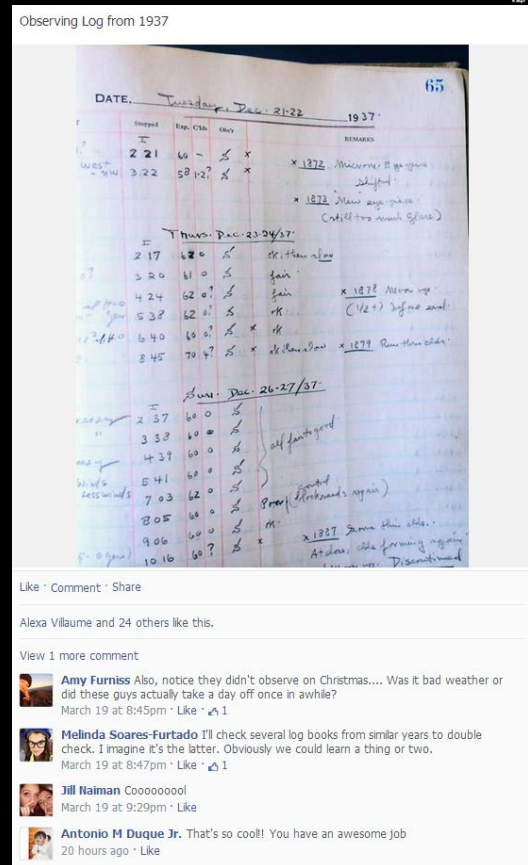 Observing Log from 1937
65
DATE, Tuesday, Dec. 21-22 1937.
Stopped Exp. Clds Obs'r REMARKS
2 21 60 - S x
West
3 22 58 1-2? S x
x 1872
shifted.
x 1873 New eye-piece
(still too much glare)
Thurs. Dec. 23-24/37.
2 17 62 0 S ok then slow
3 20 61 0 S fair
4 24 62 0? S fair x 1878
5 38 62 0? S ok. (1/2+) before end.
6 40 60 0? S x ok
8 45 70 4? S x ok then slow x 1879 Run thru clds.
Sun. Dec. 26-27/37.
2 37 60 0 S
3 38 60 0 S
4 39 60 0 S all fair to good
5 41 60 0 S
Winds
Less winds 7 03 62 0 S Poor (control clockwards again)
8 05 60 0 S ok.
9 06 60 0 S x 1887 Some thin clds.
10 16 60 ? S x At close, clds forming again
Discontinued
Like · Comment · Share
Alexa Villaume and 24 others like this.
View 1 more comment
Amy Furniss Also, notice they didn't observe on Christmas.... Was it bad weather or
did these guys actually take a day off once in awhile?
March 19 at 8:45pm · Like · 1
Melinda Soares-Furtado I'll check several log books from similar years to double
check. I imagine it's the latter. Obviously we could learn a thing or two.
March 19 at 8:47pm · Like · 1
Jill Naiman Cooooooool
March 19 at 9:29pm · Like
Antonio M Duque Jr. That's so cool!! You have an awesome job
20 hours ago · Like